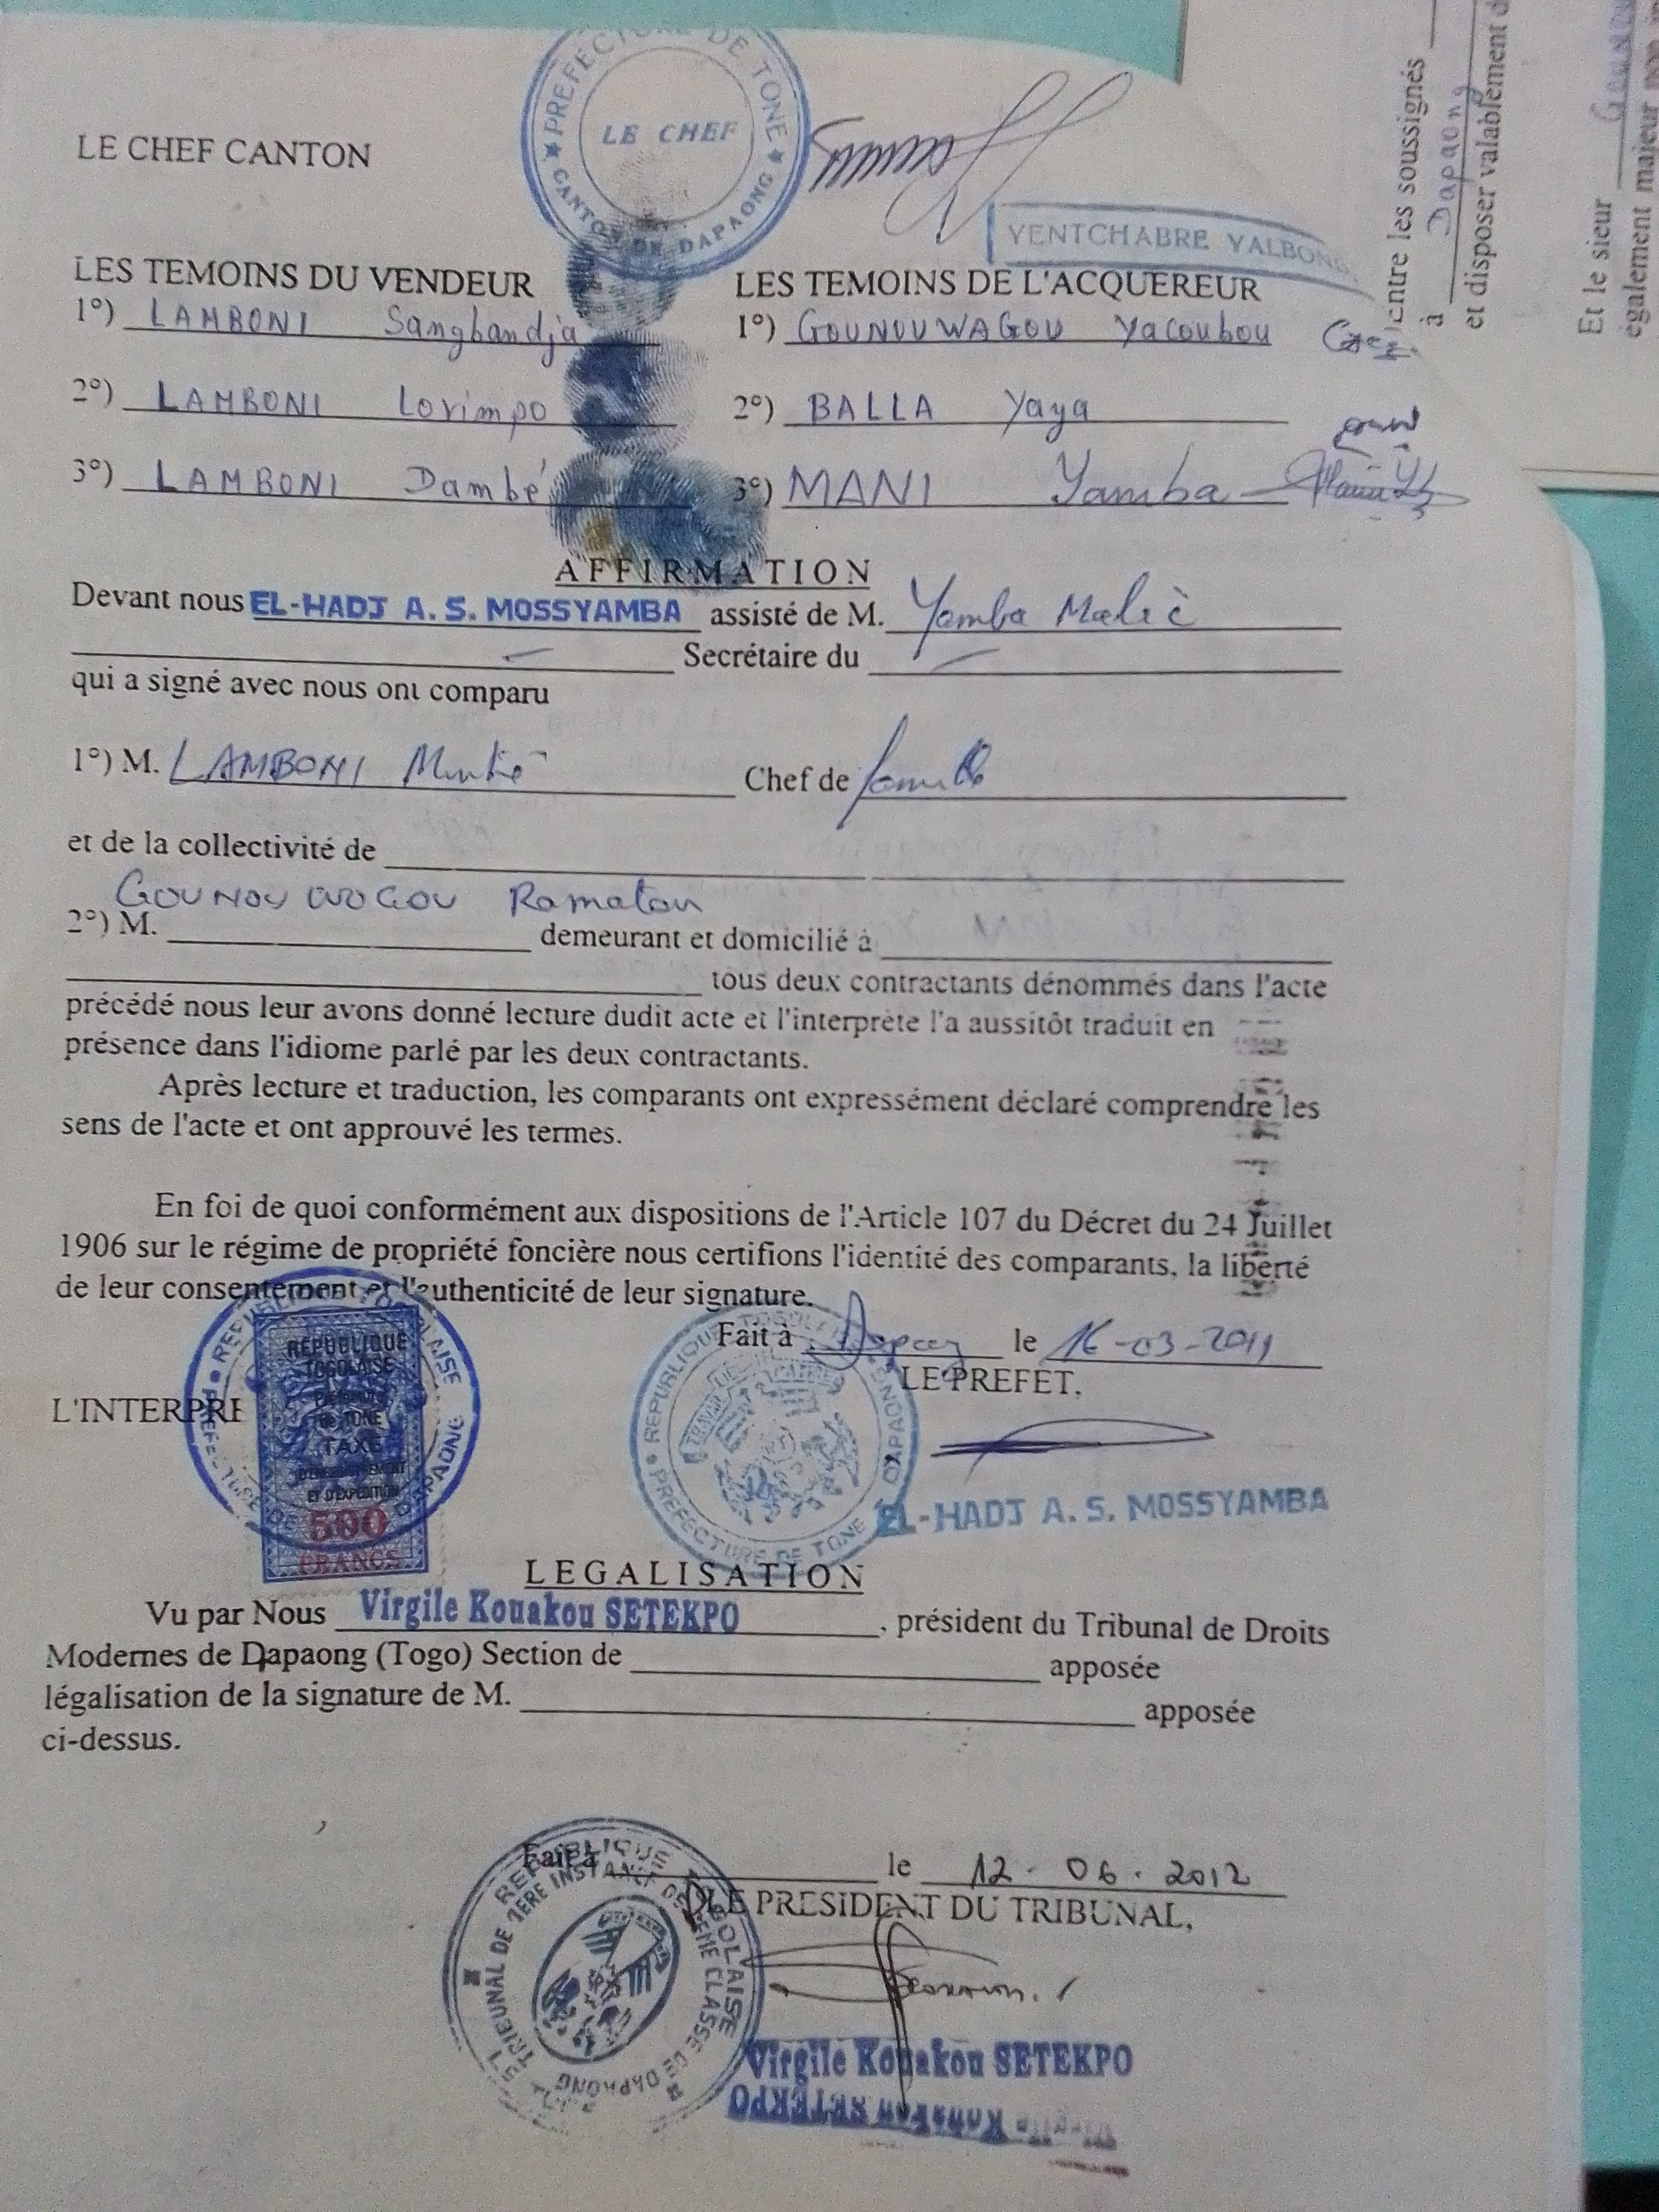 PREFECTURE DE TONE
LE CHEF
CANTON DE DAPAONG
LE CHEF CANTON
YENTCHABRE YALBONG
LES TEMOINS DU VENDEUR
1°) LAMBONI Sangbandja
2°) LAMBONI Lorimpo
3°) LAMBONI Dambé
LES TEMOINS DE L'ACQUEREUR
1°) GOUNOUWAGOU Yacoubou
2°) BALLA Yaya
3°) MANI Yamba
AFFIRMATION
Devant nous EL-HADJ A. S. MOSSYAMBA assisté de M. Yamba
Secrétaire du
qui a signé avec nous ont comparu
1°) M. LAMBONI Chef de famille
et de la collectivité de
GOUNOUWOGOU Ramatou
2°) M. demeurant et domicilié à
tous deux contractants dénommés dans l'acte
précédé nous leur avons donné lecture dudit acte et l'interprète l'a aussitôt traduit en
présence dans l'idiome parlé par les deux contractants.
Après lecture et traduction, les comparants ont expressément déclaré comprendre les
sens de l'acte et ont approuvé les termes.
En foi de quoi conformément aux dispositions de l'Article 107 du Décret du 24 Juillet
1906 sur le régime de propriété foncière nous certifions l'identité des comparants, la liberté
de leur consentement et l'authenticité de leur signature.
Fait à Dapaong le 16-03-2011
LE PREFET,
L'INTERPRE
REPUBLIQUE TOGOLAISE
PREFECTURE DE TONE DAPAONG
REPUBLIQUE
TOGOLAISE
DE TONE
TAXE
D'ENREGISTREMENT
ET D'EXPEDITION
500
FRANCS
REPUBLIQUE TOGOLAISE
PREFECTURE DE TONE DAPAONG
EL-HADJ A. S. MOSSYAMBA
LEGALISATION
Vu par Nous Virgile Kouakou SETEKPO, président du Tribunal de Droits
Modernes de Dapaong (Togo) Section de apposée
légalisation de la signature de M. apposée
ci-dessus.
Fait à le 12.06.2012
LE PRESIDENT DU TRIBUNAL,
REPUBLIQUE TOGOLAISE
TRIBUNAL DE 1ERE INSTANCE DE 3EME CLASSE DE DAPAONG
Virgile Kouakou SETEKPO
Virgile Kouakou SETEKPO
Entre les soussignés
à Dapaong
et disposer valablement d
Et le sieur
également majeur non